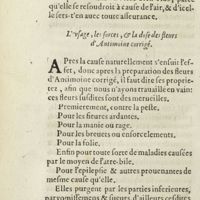 qu'elle se resoudroit à cause de l'air, & d'icel-
le sers t'en auec toute asseurance.
L'vsage, les forces, & la dose des fleurs
d'Antimoine corrigé.
APres la cause naturelle s'ensuit l'ef-
fet, donc apres la preparation des fleurs
d'Antimoine corrigé, il faut dire ses proprie-
tez, afin que nous n'ayons trauaillé en vain:
ces fleurs susdites font des merueilles.
Premierement, contre la peste.
Pour les fieures ardantes.
Pour la manie ou rage.
Pour les breuets ou enforcelemens.
Pour la folie.
Enfin pour toute sorte de maladies causées
par le moyen de l'atre-bile.
Pour l'epilepsie & autres prouenantes de
mesme cause qu'elle.
Elles purgent par les parties inferieures,
par vomissemens & sueurs d'ailleurs cesdites